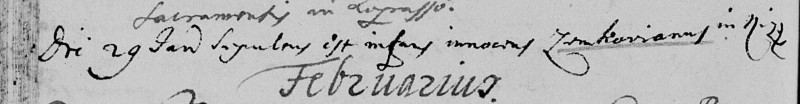 Sacramentis in
Die 29 Jan Sepultus est infans innocens Zemkovianus in
Februarius.